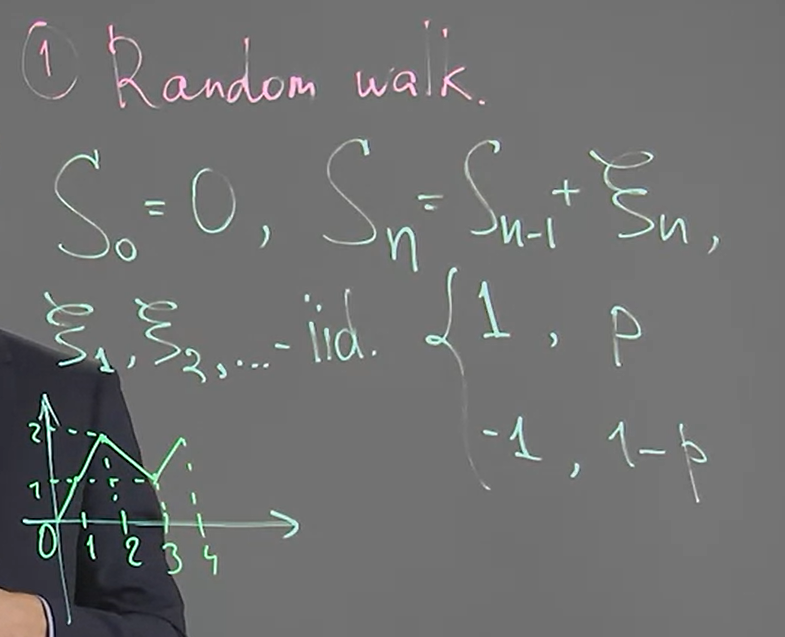 ① Random walk.
S₀ = 0, Sₙ = Sₙ₋₁ + ξₙ,
ξ₁, ξ₂, ... - iid. { 1, p
-1, 1-p
2
1
0 1 2 3 4